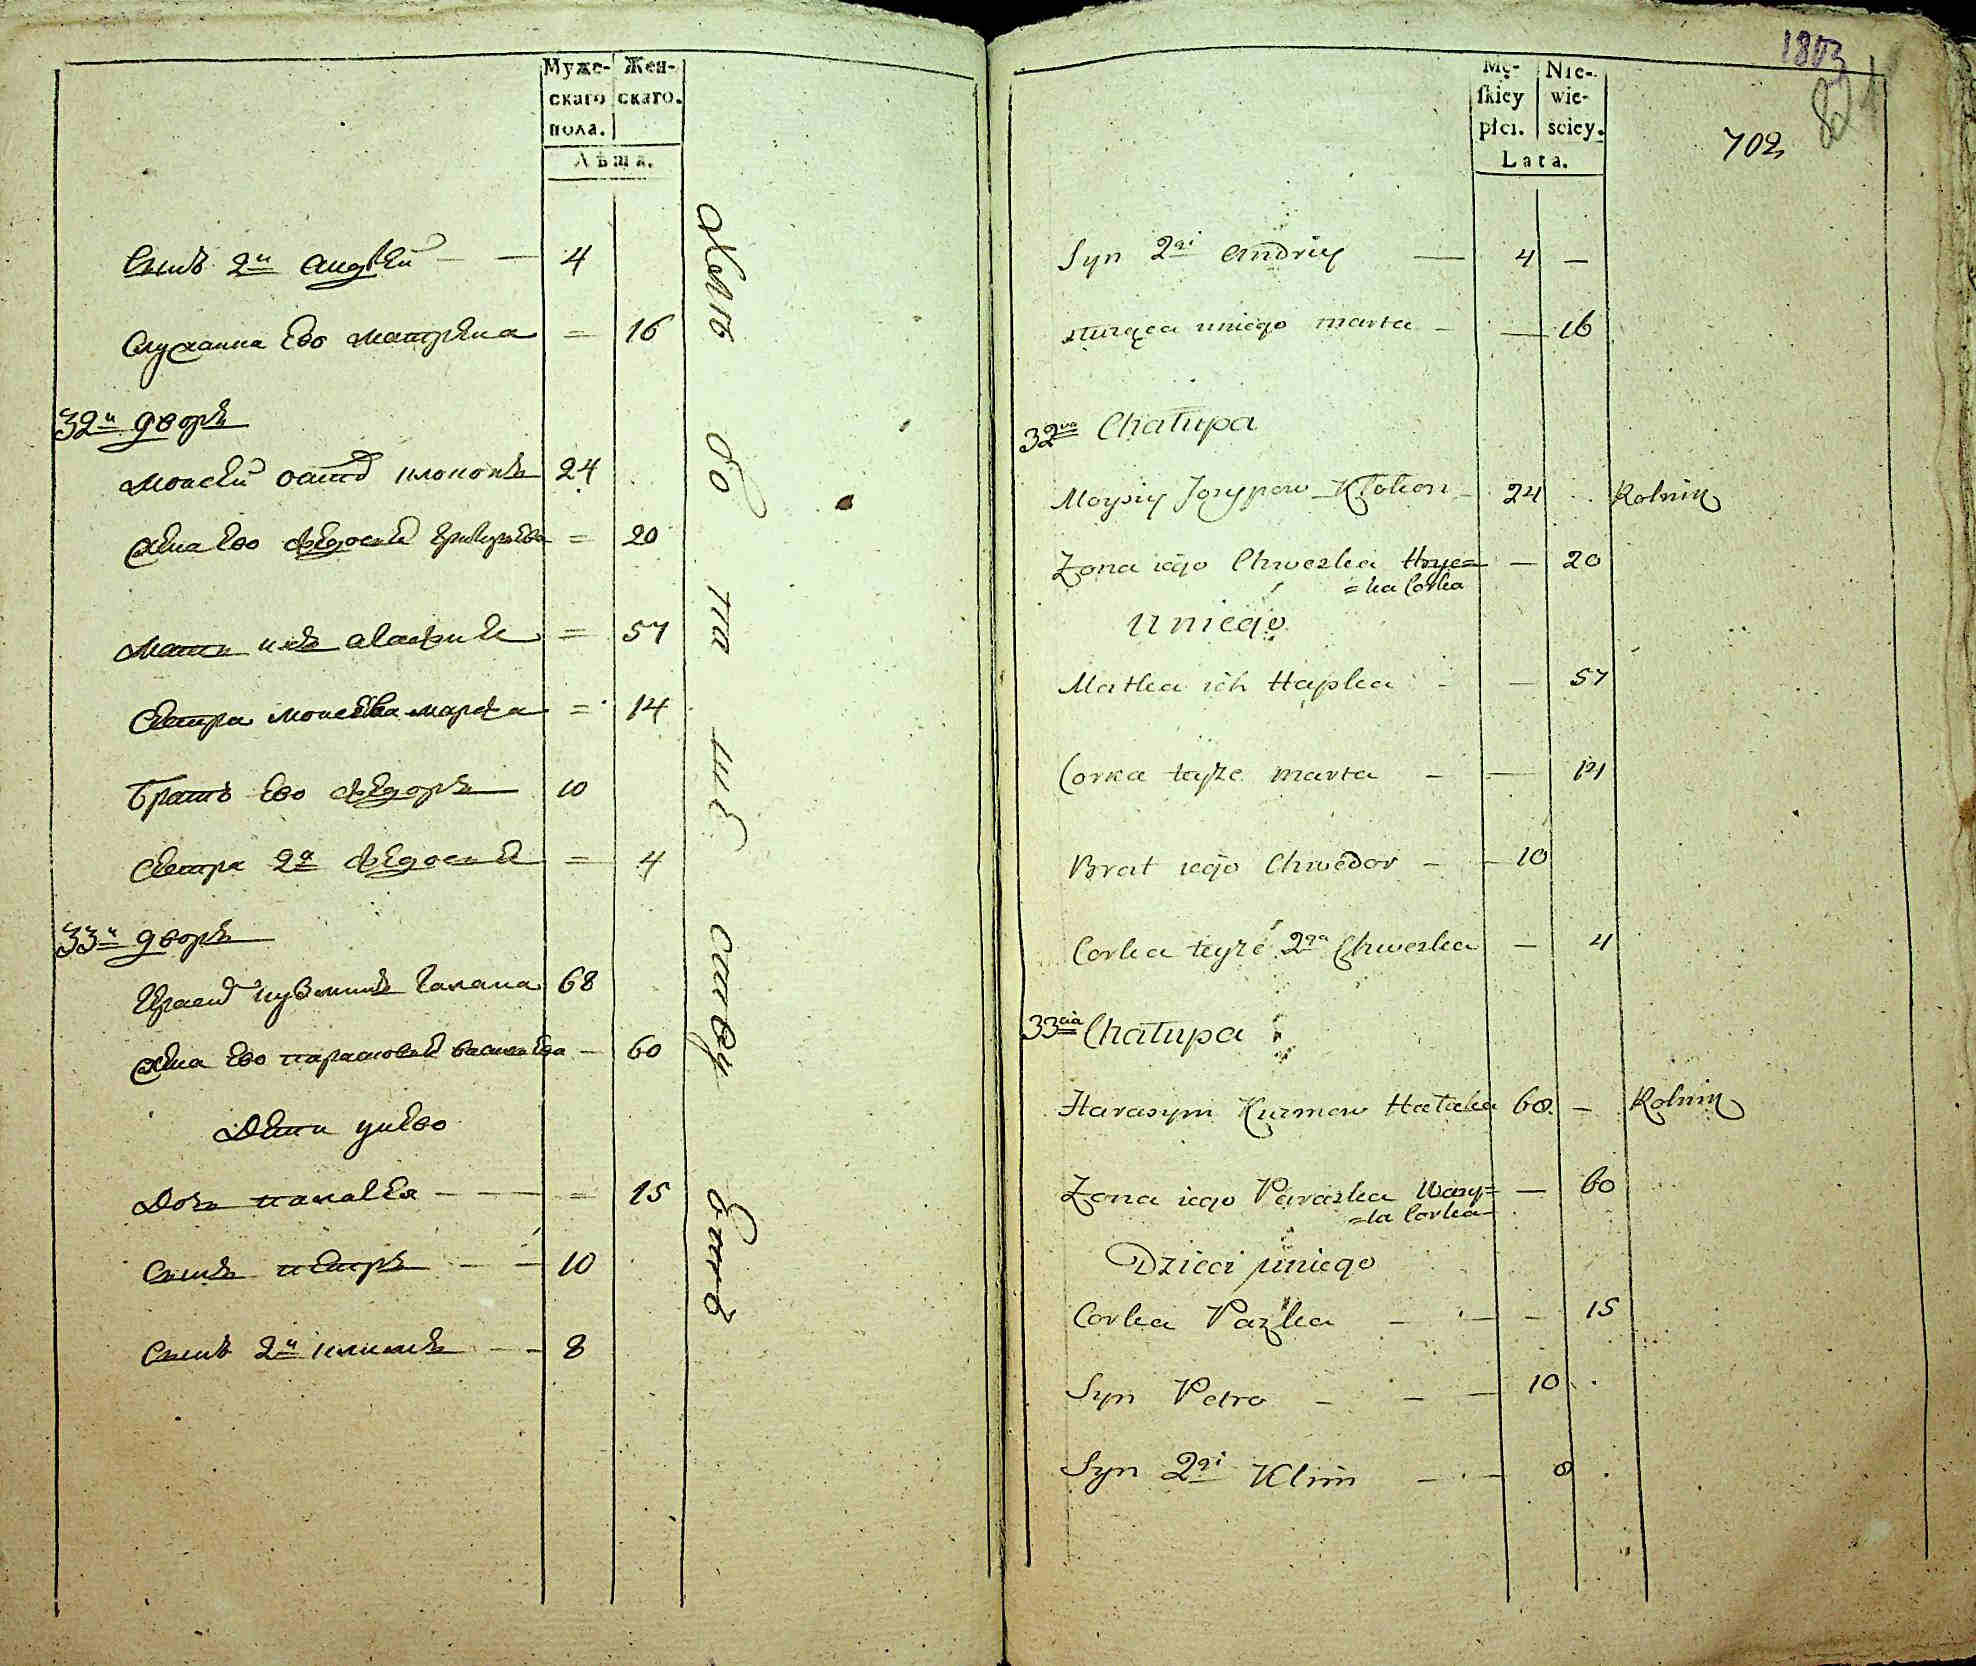 Муже-
скаго
пола.
Жен-
скаго.
Лѣта.
Сынъ 2й Андрей — — 4
Служанка Ево Матрена = 16
32й дворъ
Моисей Осипо Клоконъ 24
Жена Ево Федосея Григорьева = 20
Мать ихъ Агафия = 57
Сестра Моисеева Марфа = 14
Братъ Ево Федоръ 10
Сестра 2я Федосея = 4
33й дворъ
Гарасим Кузминъ Галака 68
Жена Ево Парасковея Васильева — 60
Дети у нево
Дочь Палагея — — = 15
Сынъ Петръ — — 10
Сынъ 2й Климъ — — 8
1803
702
Mę-
skiey
płci.
Nie-
wie-
sciey.
Lata.
Syn 2gi Andriy — 4 —
Służąca u niego Marta — — 16
32ga Chałupa
Moysiy Jozypow Kłokon — 24 Rolnik
Zona iego Chweska Hrye= — 20
=ka Corka
U niego
Matka ich Hapka — — 57
Corka teyże Marta — — 14
Brat iego Chwedor — — 10
Corka teyże 2ga Chweska — 4
33cia Chałupa
Harasym Kuzmow Hałaka 68 — Rolnik
Zona iego Paraska Wasy= — 60
=la Corka
Dzieci u niego
Corka Pazka — — — 15
Syn Petro — — — 10
Syn 2gi Klim — — 8